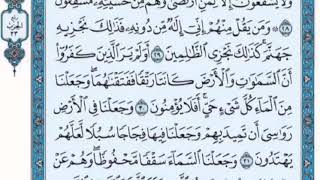 وَلَا يَشْفَعُونَ إِلَّا لِمَنِ ارْتَضَىٰ وَهُم مِّنْ خَشْيَتِهِ مُشْفِقُونَ
۝٢٨ وَمَن يَقُلْ مِنْهُمْ إِنِّي إِلَٰهٌ مِّن دُونِهِ فَذَٰلِكَ نَجْزِيهِ
جَهَنَّمَ كَذَٰلِكَ نَجْزِي الظَّالِمِينَ ۝٢٩ أَوَلَمْ يَرَ الَّذِينَ كَفَرُوا
أَنَّ السَّمَاوَاتِ وَالْأَرْضَ كَانَتَا رَتْقًا فَفَتَقْنَاهُمَا وَجَعَلْنَا
مِنَ الْمَاءِ كُلَّ شَيْءٍ حَيٍّ أَفَلَا يُؤْمِنُونَ ۝٣٠ وَجَعَلْنَا فِي الْأَرْضِ
رَوَاسِيَ أَن تَمِيدَ بِهِمْ وَجَعَلْنَا فِيهَا فِجَاجًا سُبُلًا لَّعَلَّهُمْ
يَهْتَدُونَ ۝٣١ وَجَعَلْنَا السَّمَاءَ سَقْفًا مَّحْفُوظًا وَهُمْ عَنْ